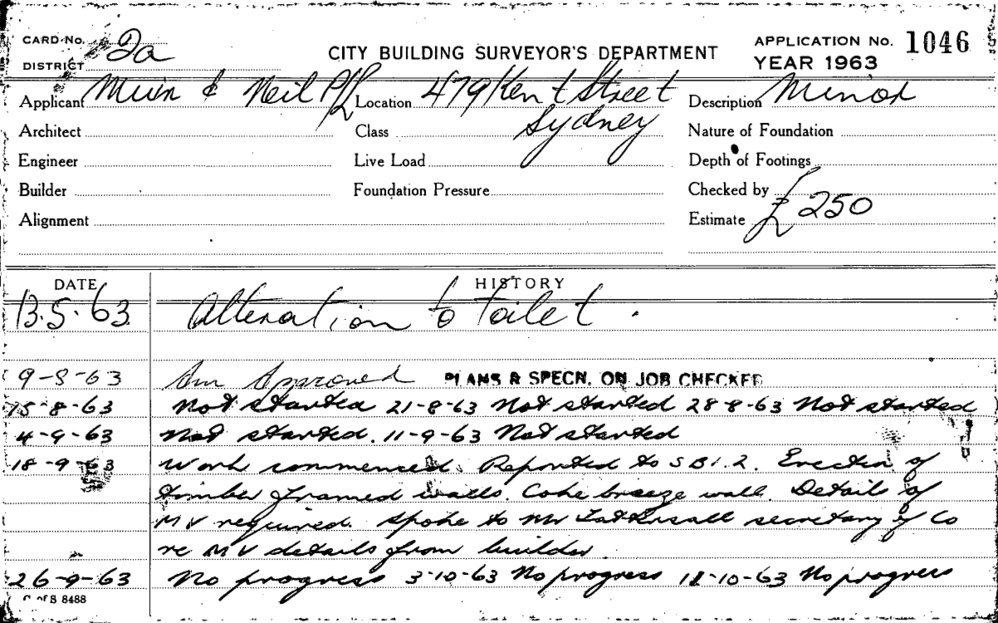 CARD No. 2a
DISTRICT
CITY BUILDING SURVEYOR'S DEPARTMENT
APPLICATION No. 1046
YEAR 1963
Applicant Muir & Neil P/L Location 479 Kent Street Description Minor
Architect Class Sydney Nature of Foundation
Engineer Live Load Depth of Footings
Builder Foundation Pressure Checked by
Alignment Estimate £250
DATE HISTORY
13.5.63 Alteration to toilet.
9-8-63 Approved PLANS & SPECN. ON JOB CHECKED
15-8-63 Not started 21-8-63 Not started 28-8-63 Not started
4-9-63 Not started. 11-9-63 Not started
18-9-63 Work commenced. Reported to SBI.2. Erection of
timber framed walls. Coke breeze wall. Details of
MV required. Spoke to Mr Tattersall secretary of Co
re MV details from builder.
26-9-63 No progress 3-10-63 No progress 11-10-63 No progress
C. of S 8488